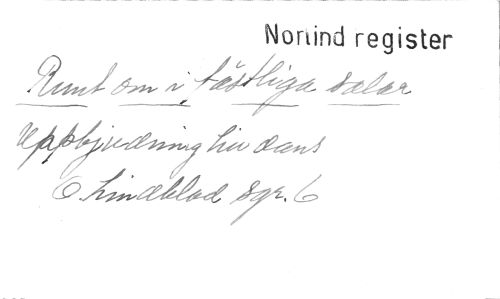 Norlind register
Runt om i fästliga salar
Uppbjudning till dans
O. Lindblad sgr. 6